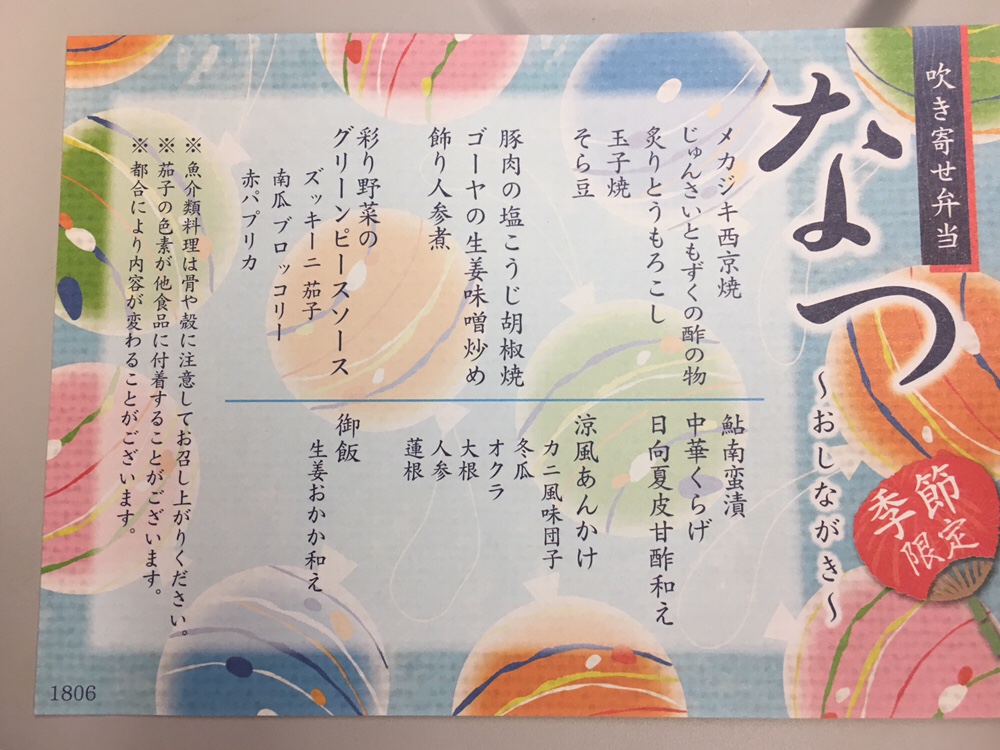 吹き寄せ弁当
なつ
～おしながき～
季節
限定
メカジキ西京焼
じゅんさいともずくの酢の物
炙りとうもろこし
玉子焼
そら豆
豚肉の塩こうじ胡椒焼
ゴーヤの生姜味噌炒め
飾り人参煮
彩り野菜の
グリーンピースソース
ズッキーニ 茄子
南瓜 ブロッコリー
赤パプリカ
鮎南蛮漬
中華くらげ
日向夏皮甘酢和え
涼風あんかけ
カニ風味団子
冬瓜
オクラ
大根
人参
蓮根
御飯
生姜おかか和え
※ 魚介類料理は骨や殻に注意してお召し上がりください。
※ 茄子の色素が他食品に付着することがございます。
※ 都合により内容が変わることがございます。
1806